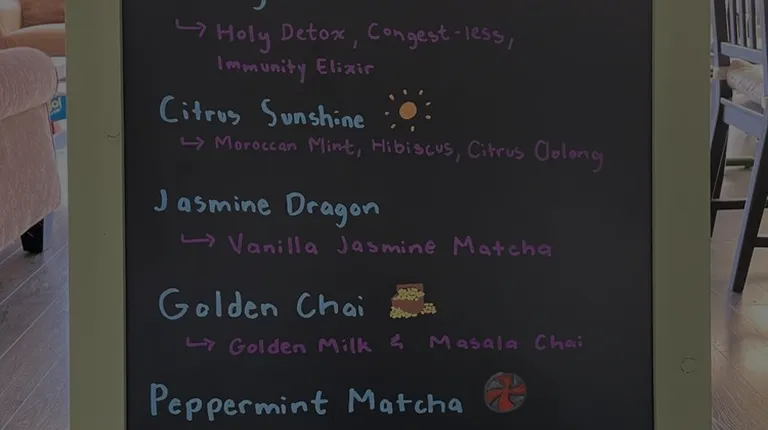 Holy Detox, Congest-less,
Immunity Elixir
Citrus Sunshine
Moroccan Mint, Hibiscus, Citrus Oolong
Jasmine Dragon
Vanilla Jasmine Matcha
Golden Chai
Golden Milk & Masala Chai
Peppermint Matcha